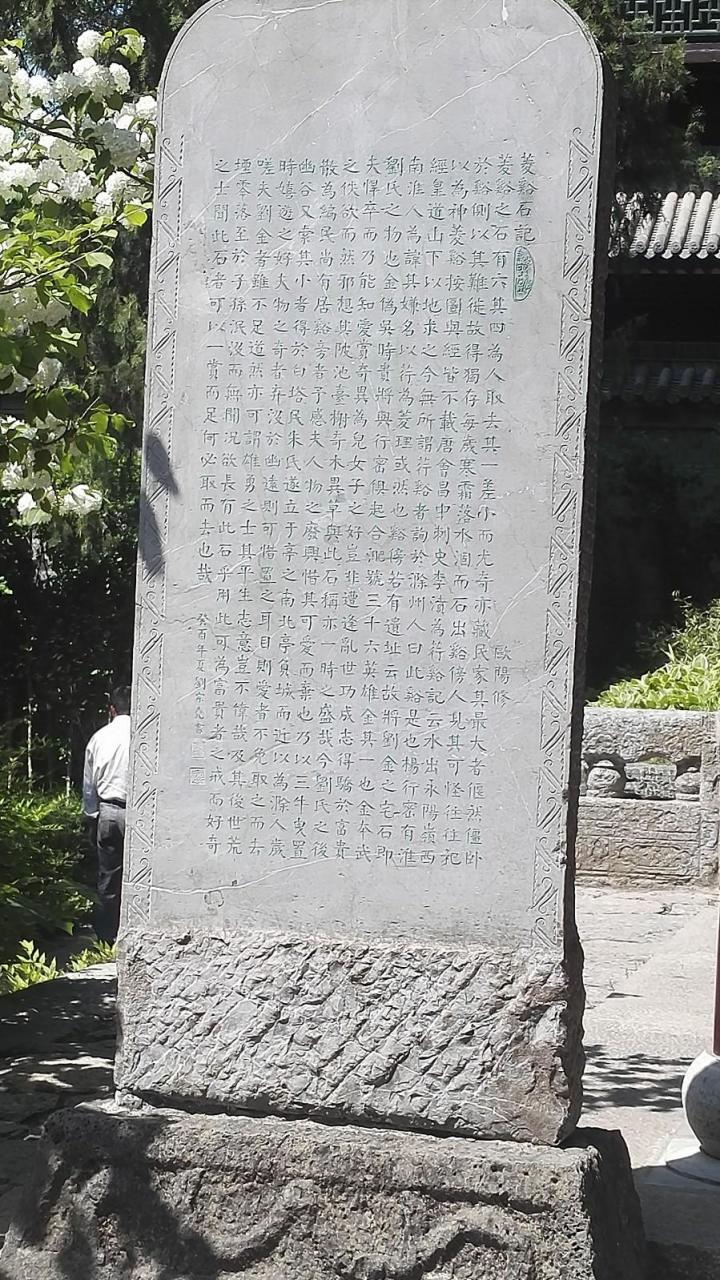 菱谿石記
歐陽修
菱谿之石有六其四為人取去其一差小而尤奇亦藏民家其最大者偃然僵卧
於谿側以其難徙故得獨存每歲寒霜落水涸而石出谿傍人見其可怪往往祀
以為神菱谿按圖與經皆不載唐會昌中刺史李濆為荇谿記云水出永陽嶺西
經皇道山下以地求之今無所謂荇谿者詢於滁州人曰此谿是也楊行密有淮
南淮人為諱其嫌名以荇為菱理或然也谿傍若有遺址云故將劉金之宅石即
劉氏之物也金偽吳時貴將與行密俱起合淝號三十六英雄金其一也金本武
夫悍卒而乃能知愛賞奇異為兒女子之好豈非遭逢亂世功成志得驕於富貴
之佚欲而然邪想其陂池臺榭奇木異草與此石稱亦一時之盛哉今劉氏之後
散為編民尚有居谿旁者予感夫人物之廢興惜其可愛而棄也乃以三牛曳置
幽谷又索其小者得於白塔民朱氏遂立于亭之南北亭負城而近以為滁人歲
時嬉遊之好夫物之奇者弃沒於幽遠則可惜置之耳目則愛者不免取之而去
嗟夫劉金者雖不足道然亦可謂雄勇之士其平生志意豈不偉哉及其後世荒
堙零落至於子孫泯沒而無聞況欲長有此石乎用此可為富貴者之戒而好奇
之士聞此石者可以一賞而足何必取而去也哉
癸酉年夏劉宗